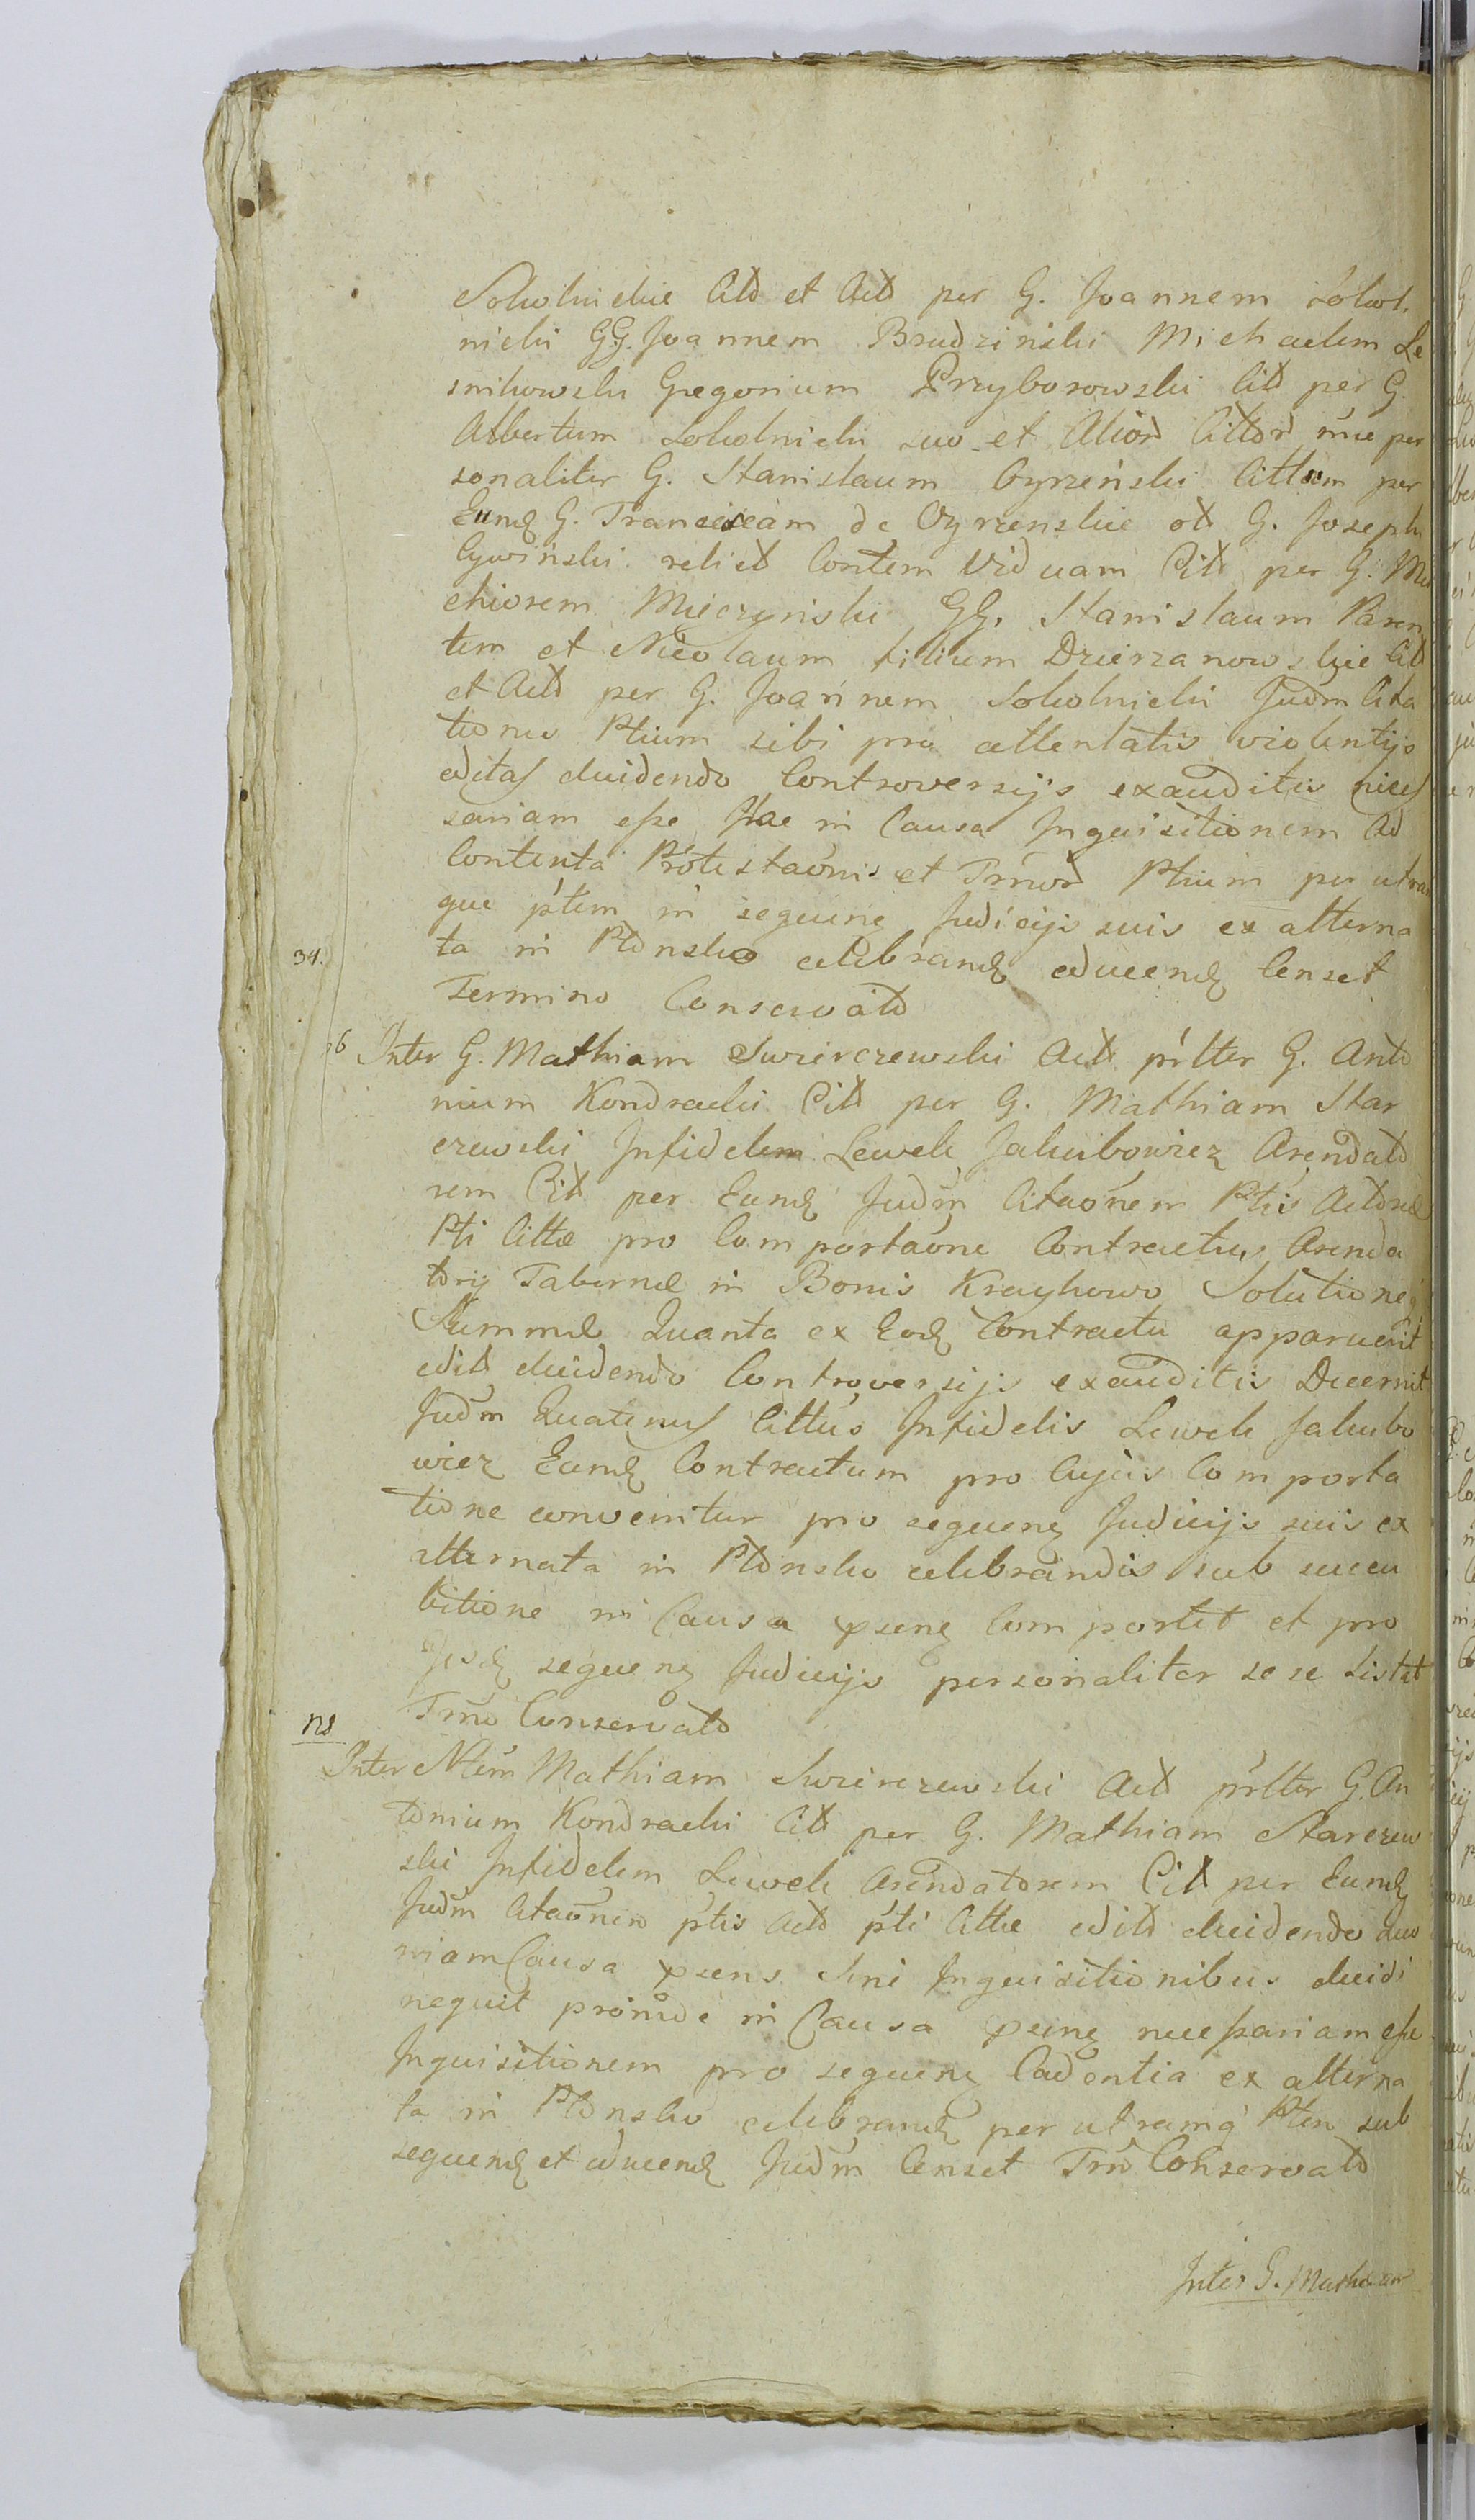 Sokolnickie Citt et Act per G. Joannem Sokol
nicki GG. Joannem Brudzinski Michaelem Le
snikowski Gregorium Przyborowski Cit per G.
Albertum Sokolnicki suo et Alior Cittor nne per
sonaliter G. Stanislaum Cyrzenski Cittum per
Eund G. Franciscam de Cyrzenskie ol G. Joseph
Cywinski relict Contem Viduam Cit per G. Mel
chiorem Mieczynski GG. Stanislaum Paren
tem et Nicolaum filium Dzierzanowskie Cit
et Act per G. Joannem Sokolnicki Judm Cita
tiones Ptium sibi pro attentatis violentijs
editas decidendo Controversijs exauditis neces
sariam esse Hac in Causa Inquisitionem Ad
Contenta Protestaonis et Trnor Ptium per utram
que ptem in sequenę Judicijs suis ex alterna
34. ta in Płonsko celebrand educend Censet
Termino Conservato
36 Inter G. Mathiam Swierczewski Act prltter G. Anto
nium Kondracki Cit per G. Mathiam Star
czewski Infidelem Lewek Jakubowicz Arendato
rem Cit per Eund Judm Citaonem Ptis Actoræ
Pti Cittæ pro Comportaone Contractus Arenda
torij Tabernæ in Bonis Kraykowo Solutioneq
Summæ Quanta ex Eod Contractu apparuerit
edit decidendo Controversijs exauditis Decernit
Judm Quatenus Cittus Infidelis Lewek Jakubo
wicz Eund Contractum pro Cujus Comporta
tione convenitur pro sequenę Judicijs suis ex
alternata in Płonsko celebrandis sub succu
bitione in Causa psenę Comportet et pro
Ijsd sequenę Judicijs personaliter se se sistat
Trno Conservato
ns
Inter Ntem Mathiam Swierczewski Act prltter G. An
tonium Kondracki Cit per G. Mathiam Starczew
ski Infidelem Lewek Arendatorem Cit per Eund
Judm Citaonem ptis Act pti Cittæ edit decidendo Quo
niam Causa psens sine Inquisitionibus decidi
nequit proinde in Causa psenę necessariam esse
Inquisitionem pro sequenę Cadentia ex alterna
ta in Płonsko celebrand per utramq Ptem sub
sequend et educend Judm Censet Trno Conservato
Inter G. Mathiam